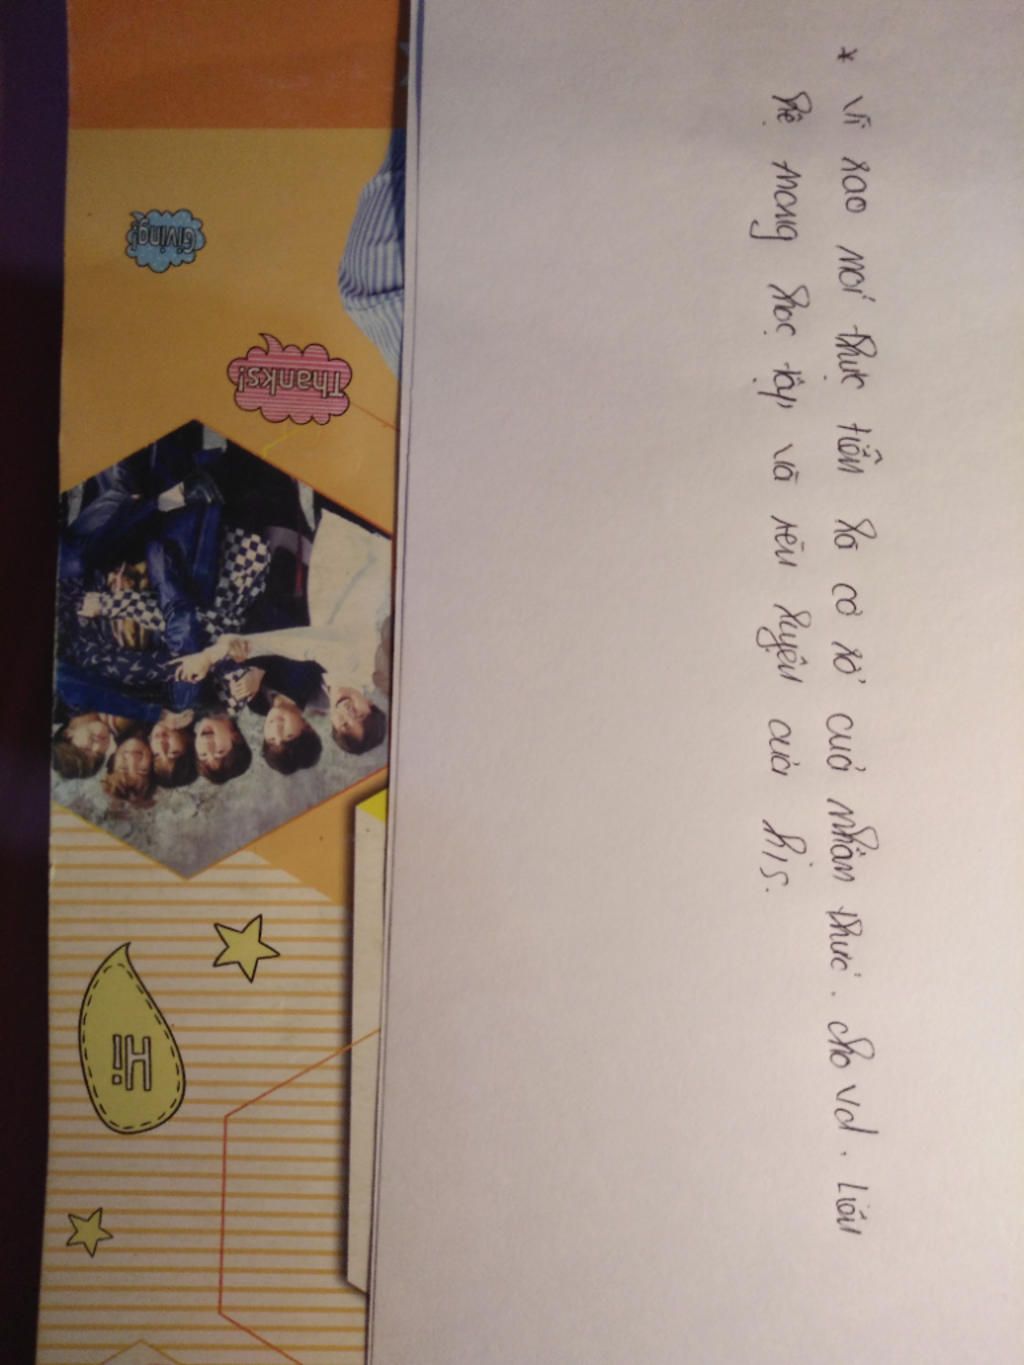 * Vì sao nói thực tiễn là cơ sở của nhận thức. cho vd. Liên
hệ trong học tập và rèn luyện của h/s.
Giving!
Thanks!
Hi